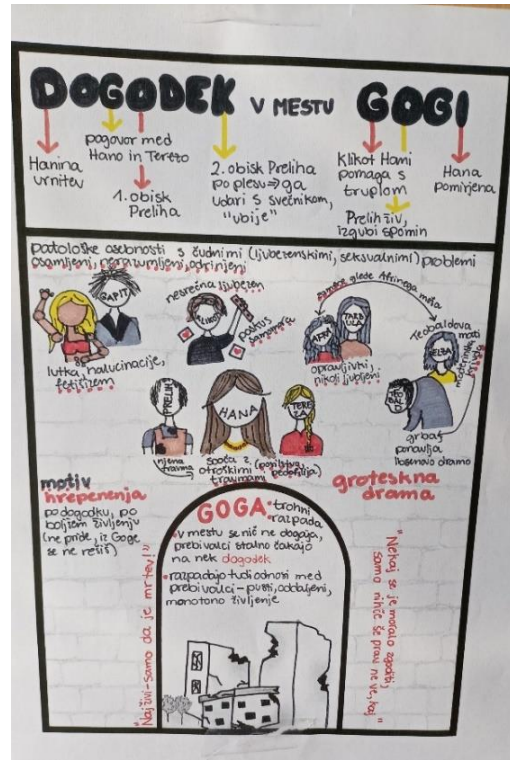 DOGODEK V MESTU GOGI
Hanina
vrnitev
pogovor med
Hano in Terezo
1. obisk
Preliha
2. obisk Preliha
po plesu⇒ga
udari s svečnikom,
"ubije"
Klikot Hani
pomaga s
truplom
Prelih živ,
izgubi spomin
Hana
pomirjena
patološke osebnosti s čudnimi (ljubezenskimi, seksualnimi) problemi
osamljeni, nerazumljeni, odrinjeni
GAPIT
lutka, halucinacije,
fetišizem
nesrečna ljubezen
KLIKOT
poskus
samomora
sumnje glede Afrinega moža
AFRA
TARBULA
opravljivi,
nikoli ljubljeni
Teobaldova
mati
ELZA
TEOBALD
grbac
ponavlja
Ibsenovo dramo
PRELIH
HANA
TEREZA
njena
travma
sooča z
otroškimi (posilstvo, pedofilija)
travmami
motiv
hrepenenja
po dogodku, po
boljšem življenju
(ne pride, iz Goge
se ne rešiš)
groteskna
drama
GOGA
•trohni
•razpada
•v mestu se nič ne dogaja,
prebivalci stalno čakajo
na nek dogodek
•razpadajo tudi odnosi med
prebivalci - pusti, oddaljeni,
monotono življenje
"Naj živi - samo da je mrtev!"
"Nekaj se je moralo zgoditi,
samo nihče še prav ne ve, kaj"